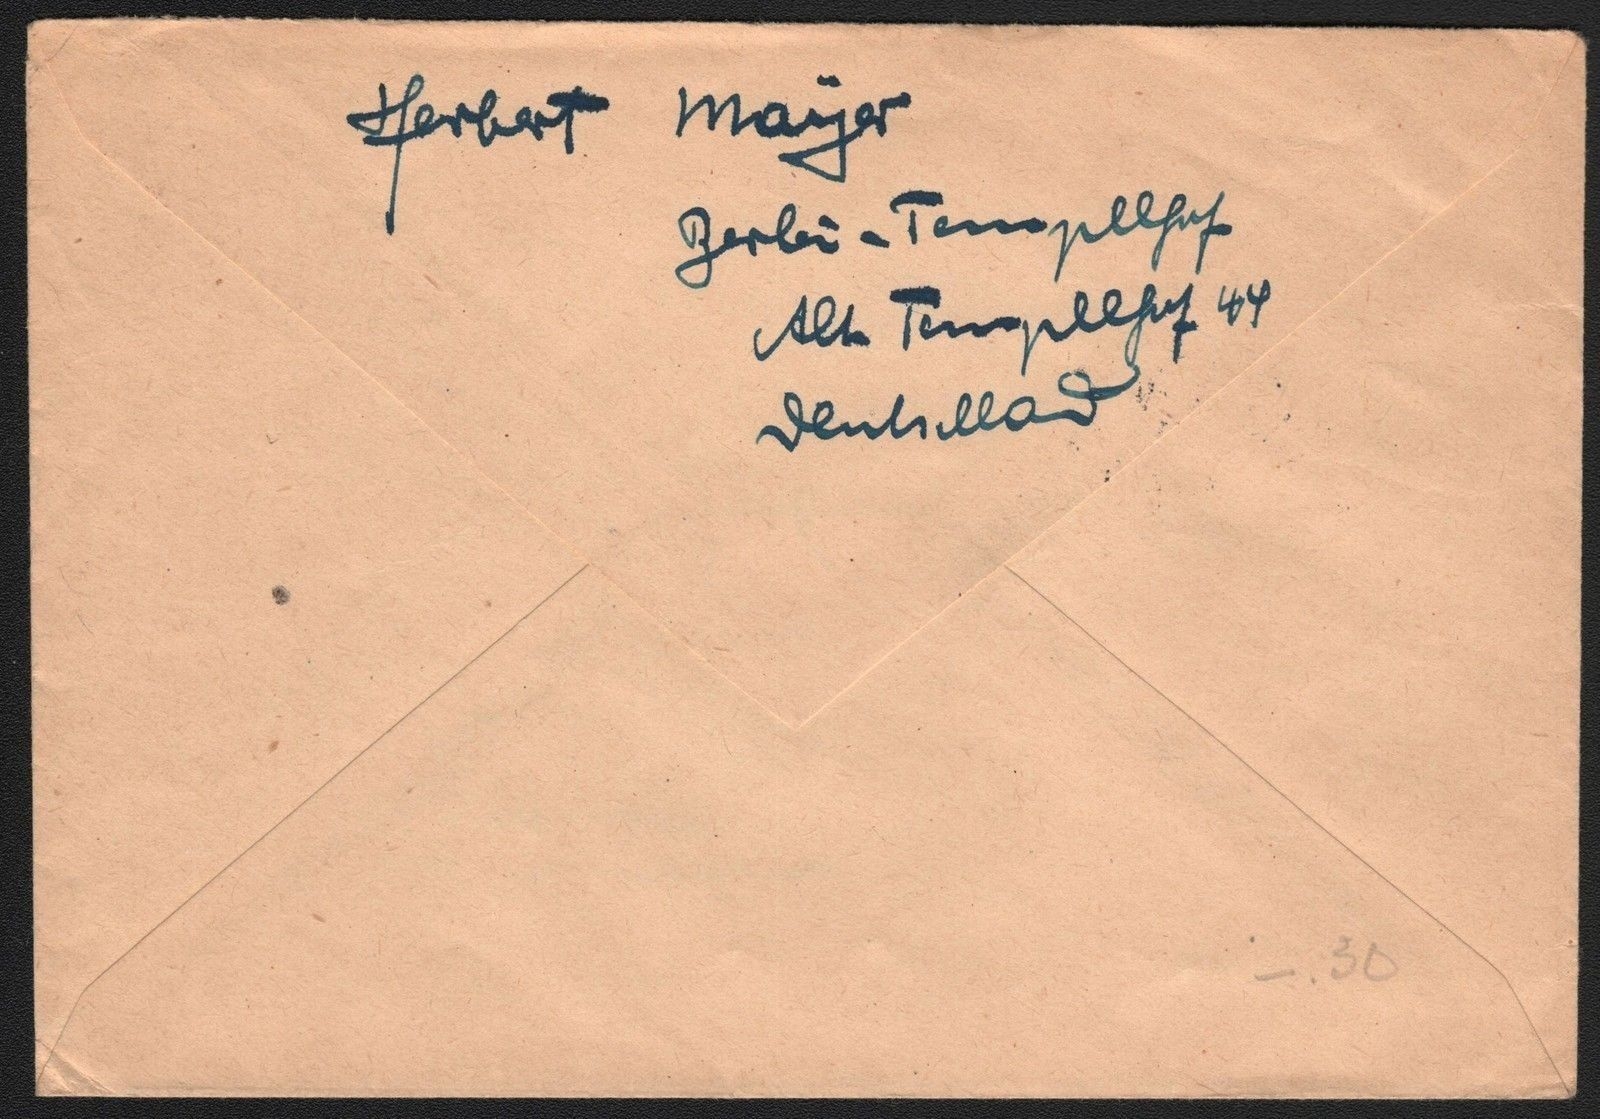 Herbert Maÿer
Berlin-Tempelhof
Alt Tempelhof 44
Deutschland
-.30